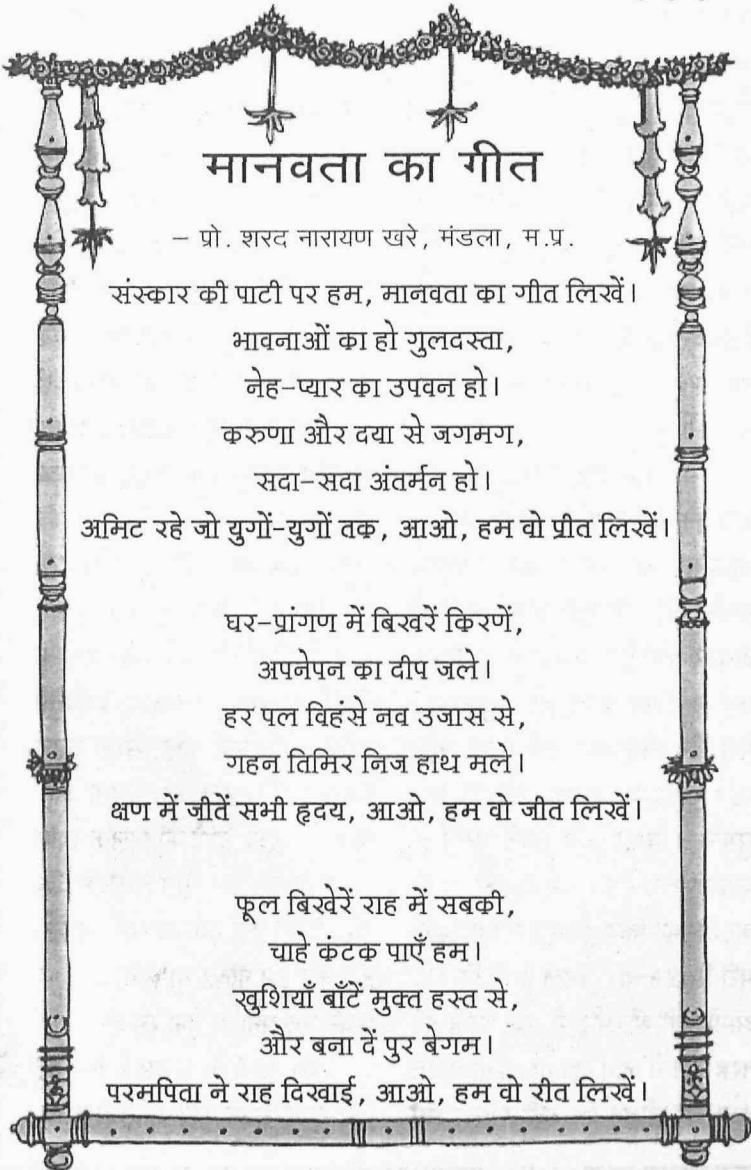 मानवता का गीत
– प्रो. शरद नारायण खरे, मंडला, म.प्र.
संस्कार की पाटी पर हम, मानवता का गीत लिखें।
भावनाओं का हो गुलदस्ता,
नेह-प्यार का उपवन हो।
करुणा और दया से जगमग,
सदा-सदा अंतर्मन हो।
अमिट रहे जो युगों-युगों तक, आओ, हम वो प्रीत लिखें।
घर-प्रांगण में बिखरें किरणें,
अपनेपन का दीप जले।
हर पल विहंसे नव उजास से,
गहन तिमिर निज हाथ मले।
क्षण में जीतें सभी हृदय, आओ, हम वो जीत लिखें।
फूल बिखेरें राह में सबकी,
चाहे कंटक पाएँ हम।
खुशियाँ बाँटें मुक्त हस्त से,
और बना दें पुर बेगम।
परमपिता ने राह दिखाई, आओ, हम वो रीत लिखें।